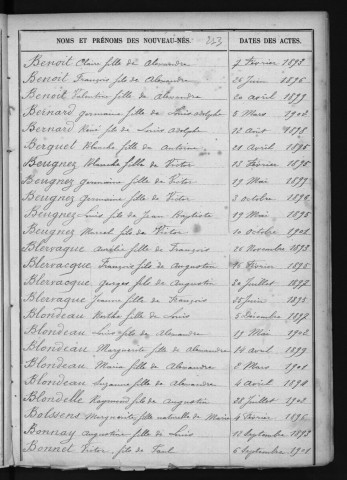 NOMS ET PRÉNOMS DES NOUVEAU-NÉS. 243 DATES DES ACTES.
Benoit Claire fille de Alexandre 9 Février 1893
Benoit François fils de Alexandre 26 Juin 1896
Benoit Valentine fille de Alexandre 20 août 1899
Bernard germaine fille de Louis adolphe 5 Mars 1902
Bernard René fils de Louis adolphe 12 août 1898
Berquel Blanche fille de Antoine 21 Avril 1895
Beugnez Blanche fille de Victor 13 Février 1895
Beugnez germaine fille de Victor 19 Mai 1899
Beugnez germaine fille de Victor 3 octobre 1896
Beugnez Louis fils de Jean Baptiste 19 Mai 1895
Beugnez Marcel fils de Victor 10 octobre 1901
Blervaque Aurélie fille de François 26 Novembre 1893
Blervacque François fils de Augustin Février 1895
Blervacque georges fils de Augustin 30 Juillet 1897
Blervaque Jeanne fille de François 25 Juin 1895
Blondeau Berthe fille de Louis 5 Décembre
Blondeau Louis fils de Alexandre 19 Mai 1902
Blondeau Marguerite fille de Alexandre 14 avril 1899
Blondeau Maria fille de Alexandre 8 Mars 1901
Blondeau Suzanne fille de Alexandre 4 août 1894
Blondelle Raymond fils de Augustin 28 Juillet 1901
Bolssens Marguerite fille naturelle de Marie 4 Février 1896
Bonnay Augustine fille de Louis 12 Septembre 1893
Bonnet Victor fils de Paul 6 Septembre 1901